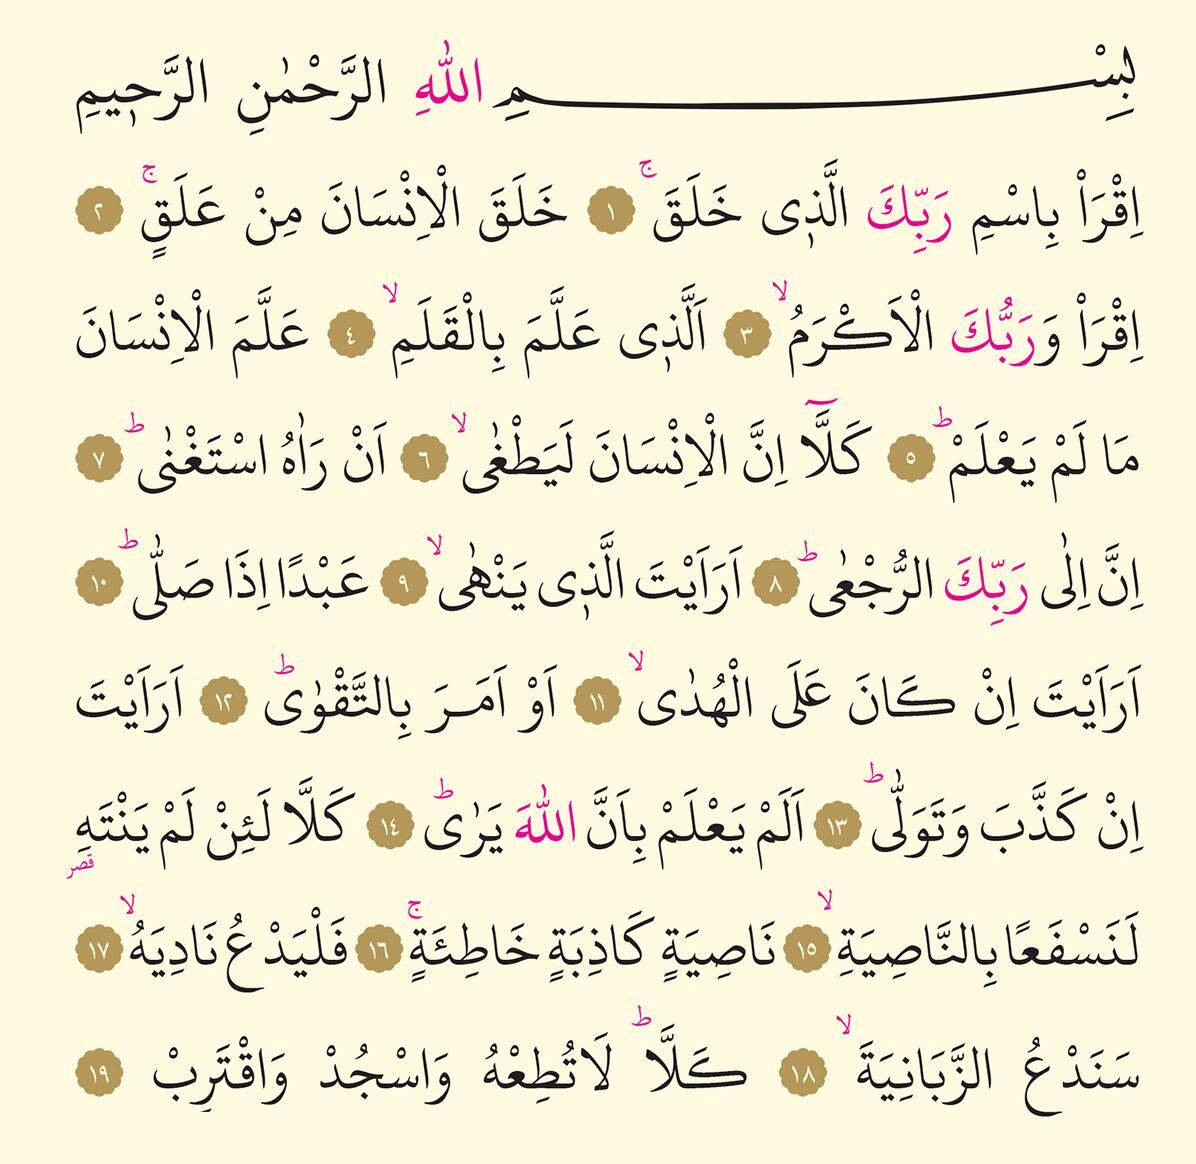 بِسْمِ اللّٰهِ الرَّحْمٰنِ الرَّحٖيمِ
اِقْرَاْ بِاسْمِ رَبِّكَ الَّذٖى خَلَقَۚ ١ خَلَقَ الْاِنْسَانَ مِنْ عَلَقٍۚ ٢
اِقْرَاْ وَرَبُّكَ الْاَكْرَمُۙ ٣ اَلَّذٖى عَلَّمَ بِالْقَلَمِۙ ٤ عَلَّمَ الْاِنْسَانَ
مَا لَمْ يَعْلَمْؕ ٥ كَلَّٓا اِنَّ الْاِنْسَانَ لَيَطْغٰىۙ ٦ اَنْ رَاٰهُ اسْتَغْنٰىؕ ٧
اِنَّ اِلٰى رَبِّكَ الرُّجْعٰىؕ ٨ اَرَاَيْتَ الَّذٖى يَنْهٰىۙ ٩ عَبْدًا اِذَا صَلّٰىؕ ١٠
اَرَاَيْتَ اِنْ كَانَ عَلَى الْهُدٰىۙ ١١ اَوْ اَمَرَ بِالتَّقْوٰىؕ ١٢ اَرَاَيْتَ
اِنْ كَذَّبَ وَتَوَلّٰىؕ ١٣ اَلَمْ يَعْلَمْ بِاَنَّ اللّٰهَ يَرٰىؕ ١٤ كَلَّا لَئِنْ لَمْ يَنْتَهِ
قصر
لَنَسْفَعًا بِالنَّاصِيَةِۙ ١٥ نَاصِيَةٍ كَاذِبَةٍ خَاطِئَةٍۚ ١٦ فَلْيَدْعُ نَادِيَهُۙ ١٧
سَنَدْعُ الزَّبَانِيَةَۙ ١٨ كَلَّاؕ لَا تُطِعْهُ وَاسْجُدْ وَاقْتَرِبْ ١٩